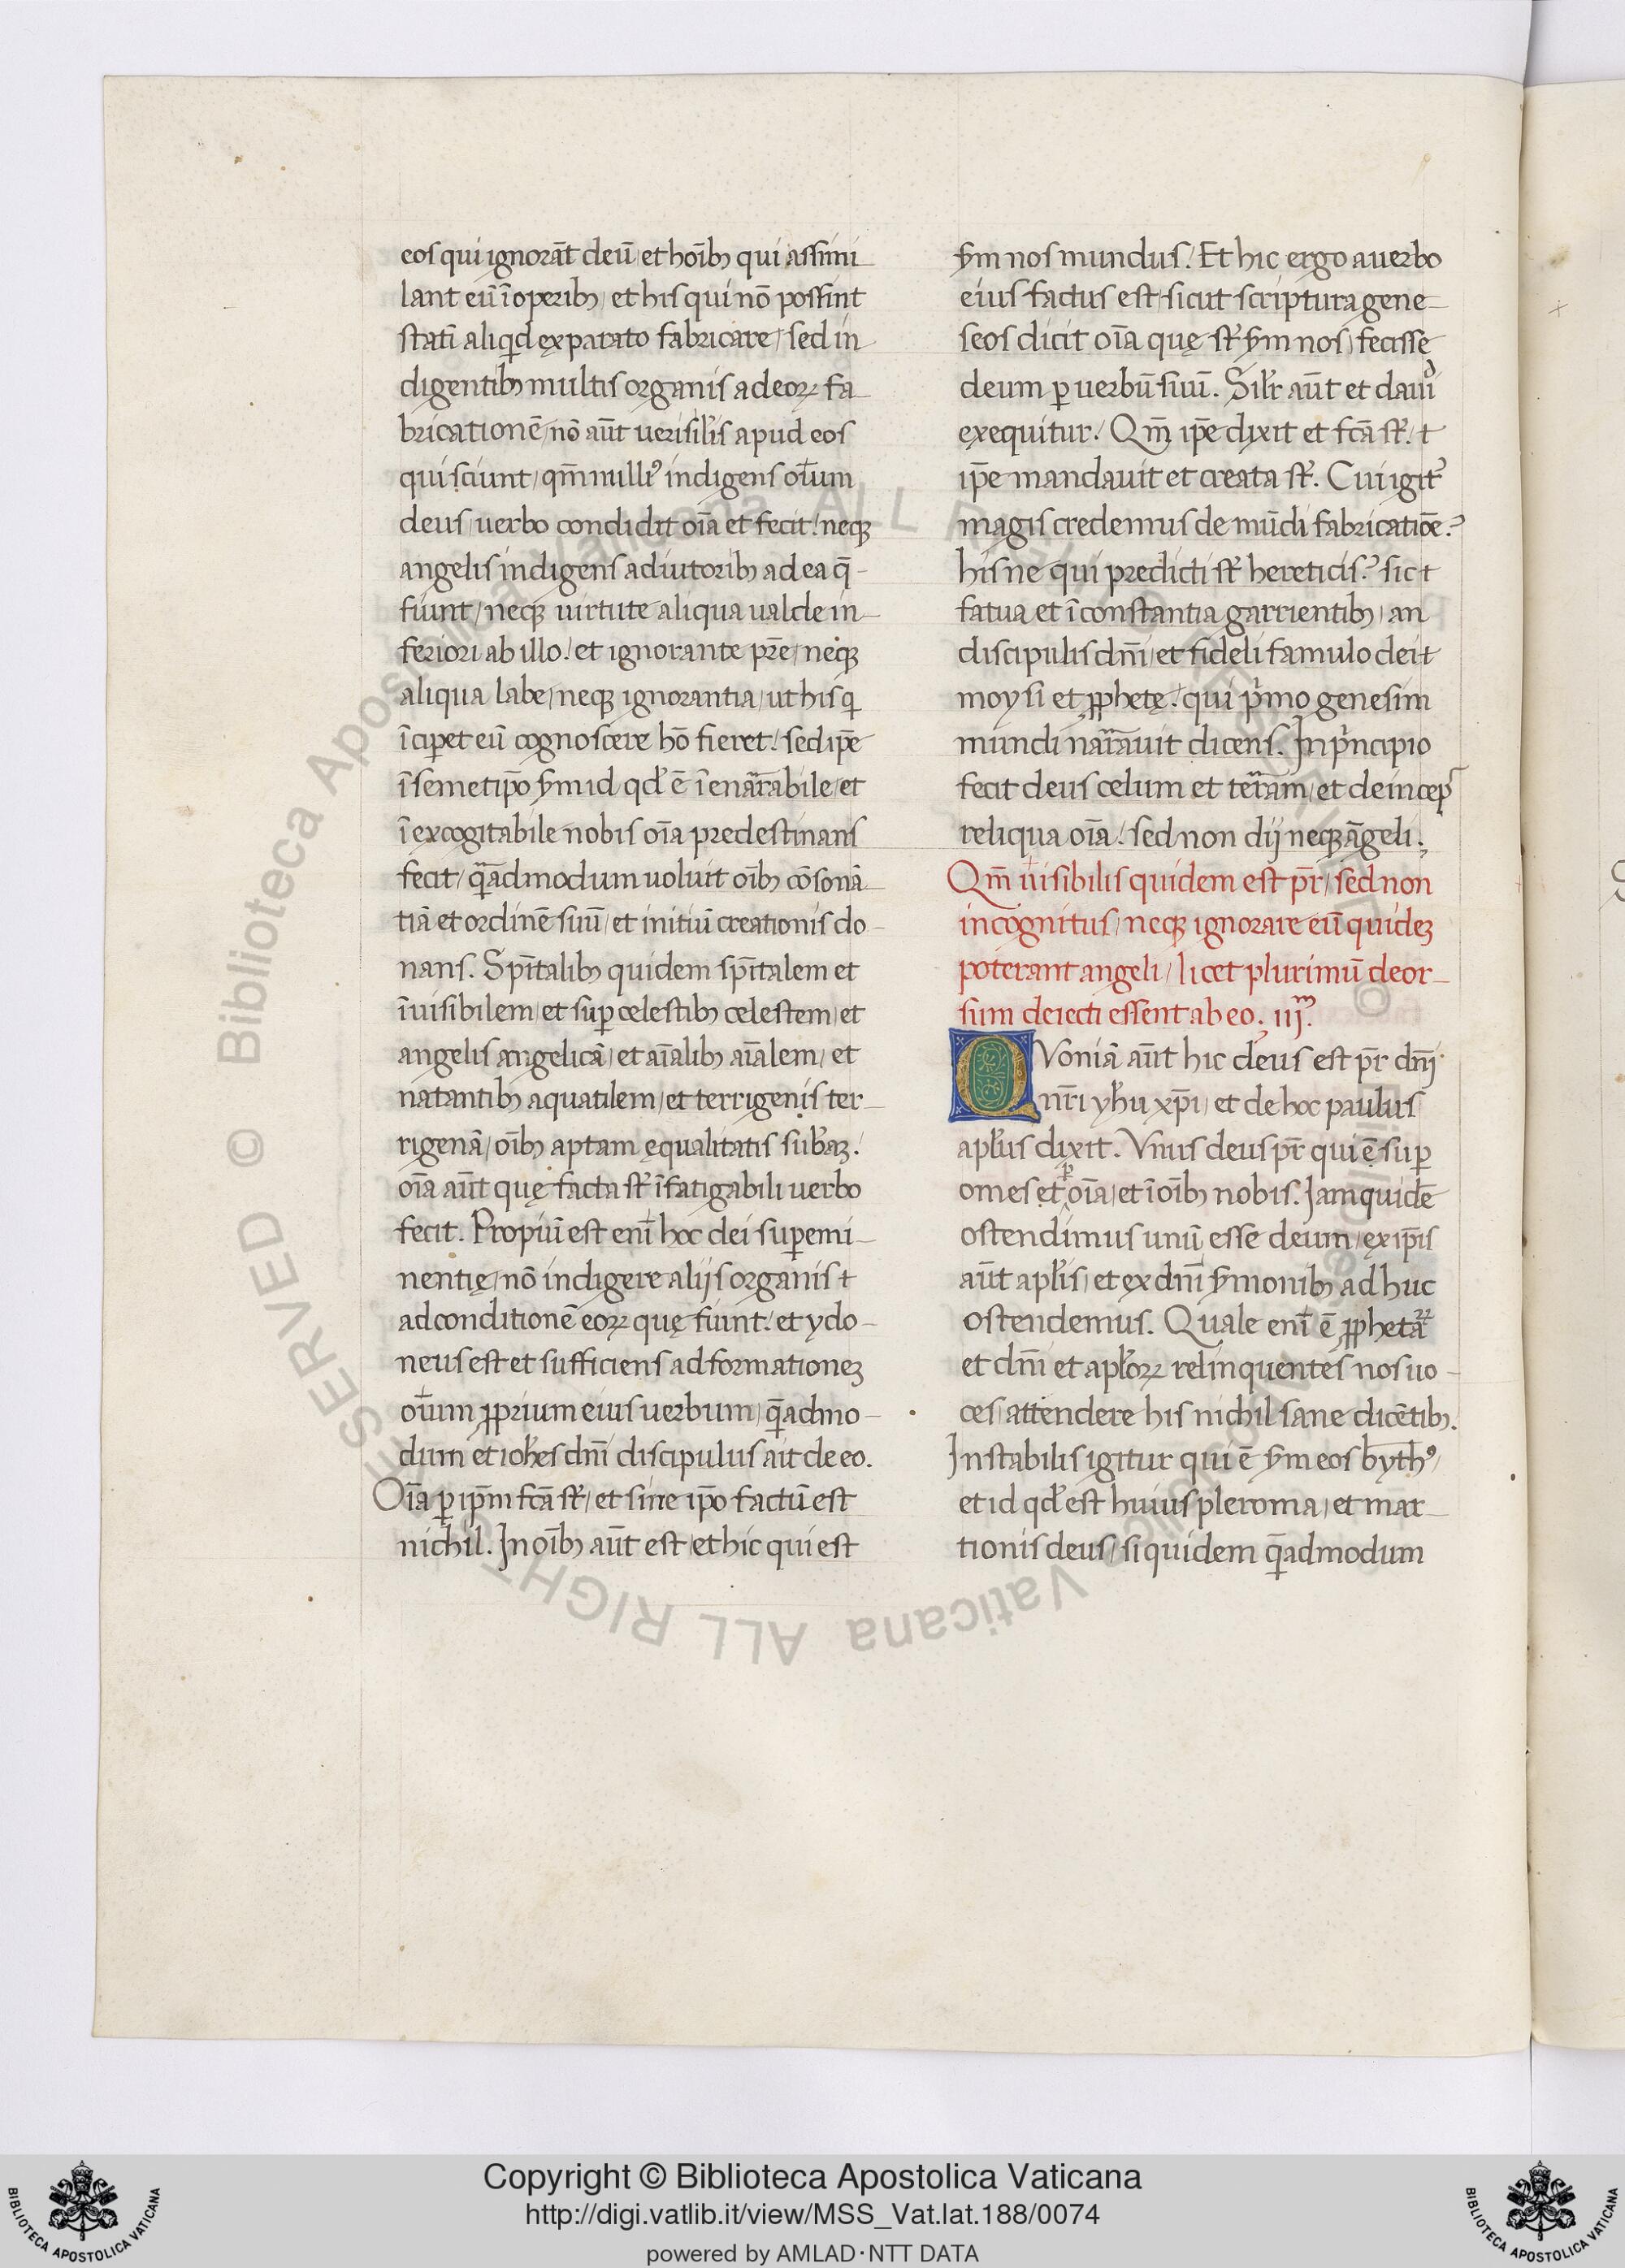 eos qui ignorāt deū et hoībꝫ qui assimi-
lant eū īoperibꝫ et his qui nō possint
statī aliqͥd ex parato fabricare, sed in-
digentibꝫ multis organis ad eoꝝ fa-
bricationē, nō aūt uerisiłis apud eos
qui sciunt, qm̄ nulliꝰ indigens oīum
deus, uerbo condidit oīa et fecit: neqꝫ
angelis indigens adiutoribꝫ ad ea q̄-
fiunt, neqꝫ uirtute aliqua ualde in-
feriori ab illo: et ignorante pr̄e, neqꝫ
aliqua labe, neqꝫ ignorantia, ut his qͥ
īciꝑet eū cognoscere hō fieret: sed ip̄e
ī semetip̄o ẜm id qđ ē īenarrabile, et
ī excogitabile nobis oīa predestinans
fecit, quēadmodum uoluit oībꝫ cōsonā-
tiā et ordinē suū, et initiū creationis do-
nans. Spīt̄alibꝫ quidem spīt̄alem et
īuisibilem, et suꝑ celestibꝫ celestem, et
angelis angelicā, et aīalibꝫ aīalem, et
natantibꝫ aquatilem, et terrigenis ter-
rigenā, oībꝫ aptam ęqualitatis sub̄aꝫ:
oīa aūt quę facta sť īfatigabili uerbo
fecit. Propiū est enī hoc dei suꝑemi-
nentię, nō indigere alijs organis t
ad conditionē eoꝝ quę fiunt: et ydo-
neus est et sufficiens ad formationeꝫ
oīum ꝓprium eius uerbum, quēadmo-
dum et ioħes dn̄i discipulus ait de eo.
Oīa ꝑ ip̄m fc̄a sť, et sine ip̄o factū est
nichil. In oībꝫ aūt est, et hic qui est
ẜm nos mundus. Et hic ergo a uerbo
eius factus est, sicut scriptura gene-
seos dicit oīa quę sť ẜm nos, fecisse
deum ꝑ uerbū suū. Siłr aūt et dauid
exequitur. Qm̄ ip̄e dixit et fc̄a sť: t
ip̄e mandauit et creata sť. Cui igitͬ
magis credemus de mūdi fabricatiōe?
hisne qui predicti sť hereticis? sic t
fatua et īconstantia garrientibꝫ, an
discipulis dn̄i, et fideli famulo dei t
moysi et ꝓphetę: qui pͥmo genesim
mundi narrauit dicens. In pͥncipio
fecit deus celum et terram, et deinceꝑ
reliqua oīa: sed non dij neqꝫ āgeli.
Qm̄ īuisibilis quidem est pr̄, sed non
incognitus, neqꝫ ignorare eū quideꝫ
poterant angeli, licet plurimū deor-
sum deiecti essent ab eo. iijᵐ.
QVoniā aūt hic deus est pr̄ dn̄i
nr̄i yħu xp̄i, et de hoc paulus
apłus dixit. Vnus deus pr̄ qui ē suꝑ
omes et ꝑ oīa, et ī oībꝫ nobis. Iam quidē
ostendimus unū esse deum, ex ip̄is
aūt apłis, et ex dn̄i ẜmonibꝫ ad huc
ostendemus. Quale enī ē ꝓphetaꝝ
et dn̄i et apłoꝝ relinquentes nos uo-
ces, attendere his nichil sane dicētibꝫ.
Instabilis igitur qui ē ẜm eos bythꝰ,
et id qđ est huius pleroma, et mar-
tionis deus, siquidem quēadmodum
Copyright © Biblioteca Apostolica Vaticana
http://digi.vatlib.it/view/MSS_Vat.lat.188/0074
powered by AMLAD·NTT DATA